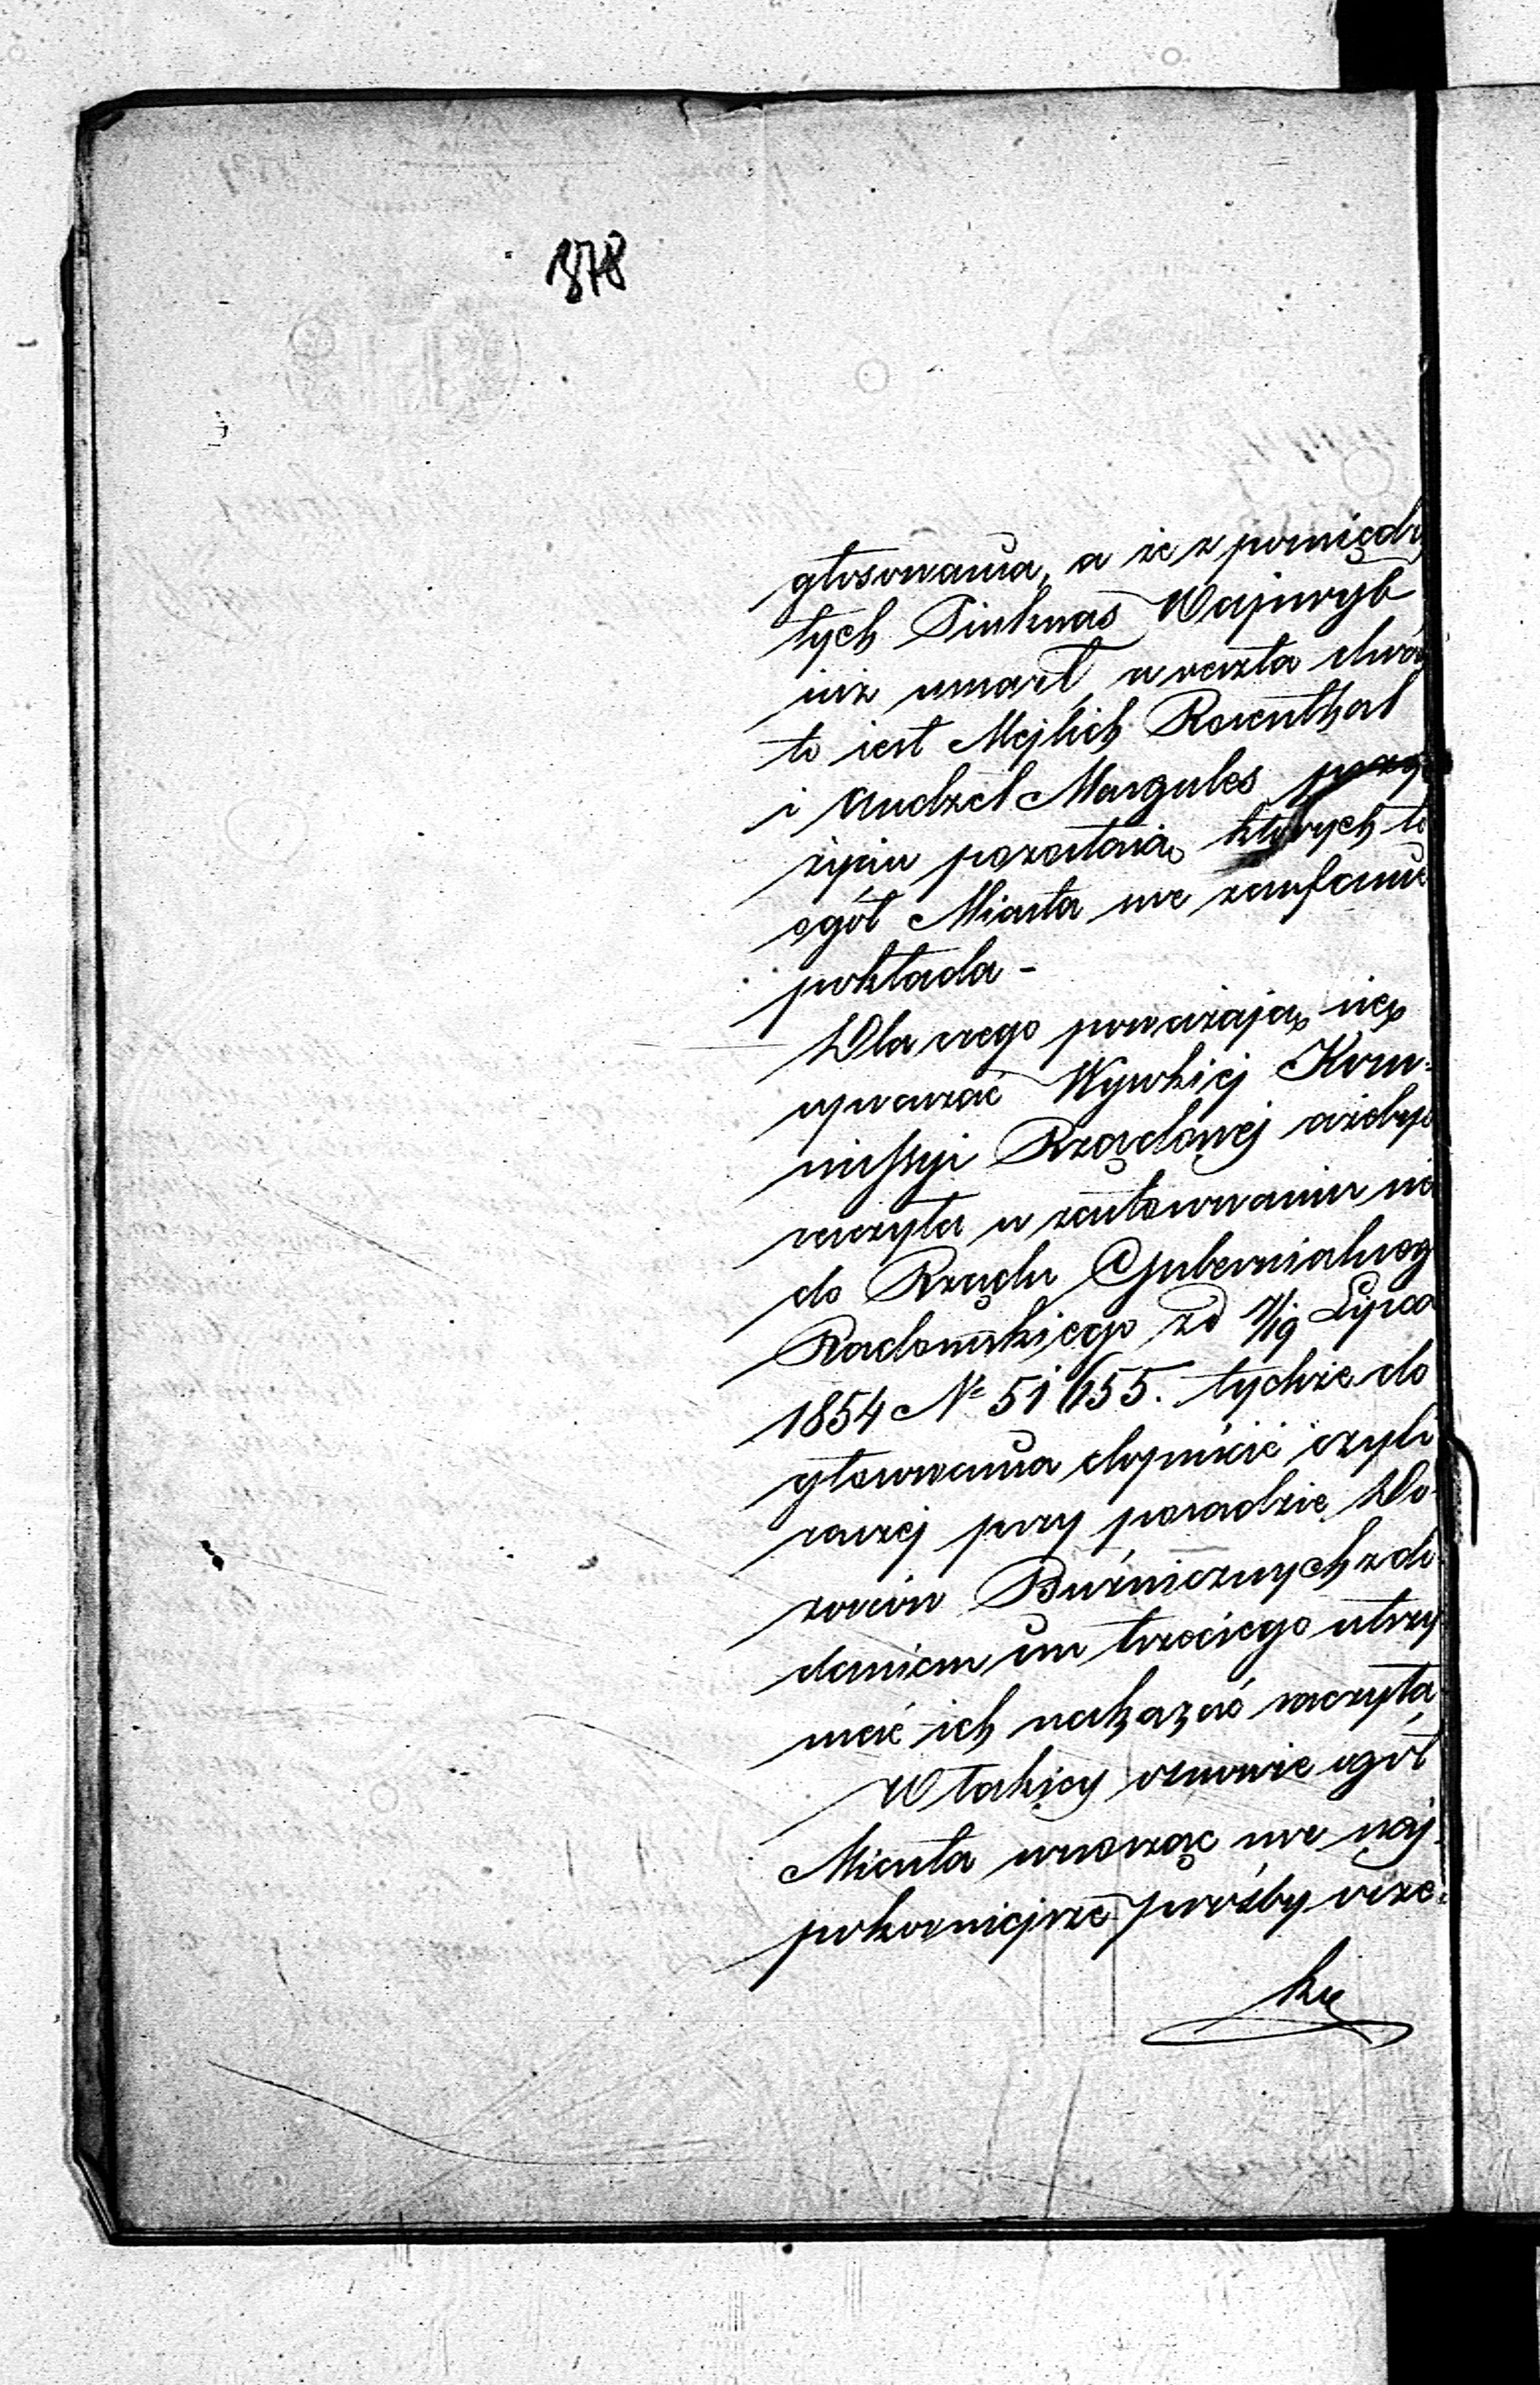 378
głosowania, a że z pomiędzy
tych Pinkuas Wajnryb
iuż umarł, a reszta dwóch
to iest Mejlich Rosenthal
i Andzel Margules przy
życiu pozostaią, których to
ogół Miasta swe zaufanie
pokłada -
Dla czego poważają się
upraszać Wysokiej Kom=
missyi Rządowej ażeby
raczyła w zastosowaniu się
do Rządu Gubernialnego
Radomskiego z d 7/19 Lipca
1854 № 51655. tychże do
głosowania dopuścić czyli
raczej przy posadzie Do-
zorców Bużnicznych z do-
daniem im trzeciego utrzy
mać ich nakazać raczyła,
W takiey osnowie ogół
Miasta wnosząc swe naj-
pokorniejsze prośby ocze=
ku